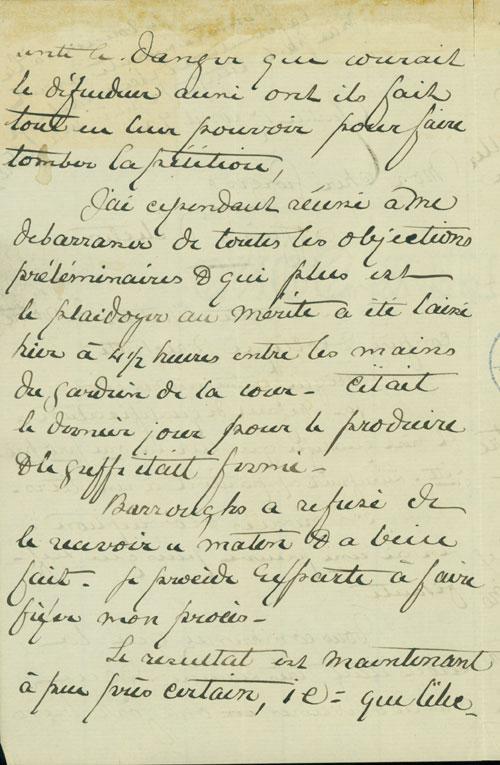 senti le danger que courait
le défendeur aussi ont ils fait
tout en leur pouvoir pour faire
tomber la pétition,
J'ai cependant réussi à me
debarrasser de toutes les objections
préléminaires & qui plus est
le plaidoyer au mérite a été laissé
hier à 4½ heures entre les mains
du gardien de la cour - C'était
le dernier jour pour le produire
& le greffe était fermé -
Barroughs a refusé de
le recevoir ce matin & a bien
fait - Je procède Exparte à faire
fixer mon procès -
Le resultat est maintenant
à peu près certain, i e = que l'élec-